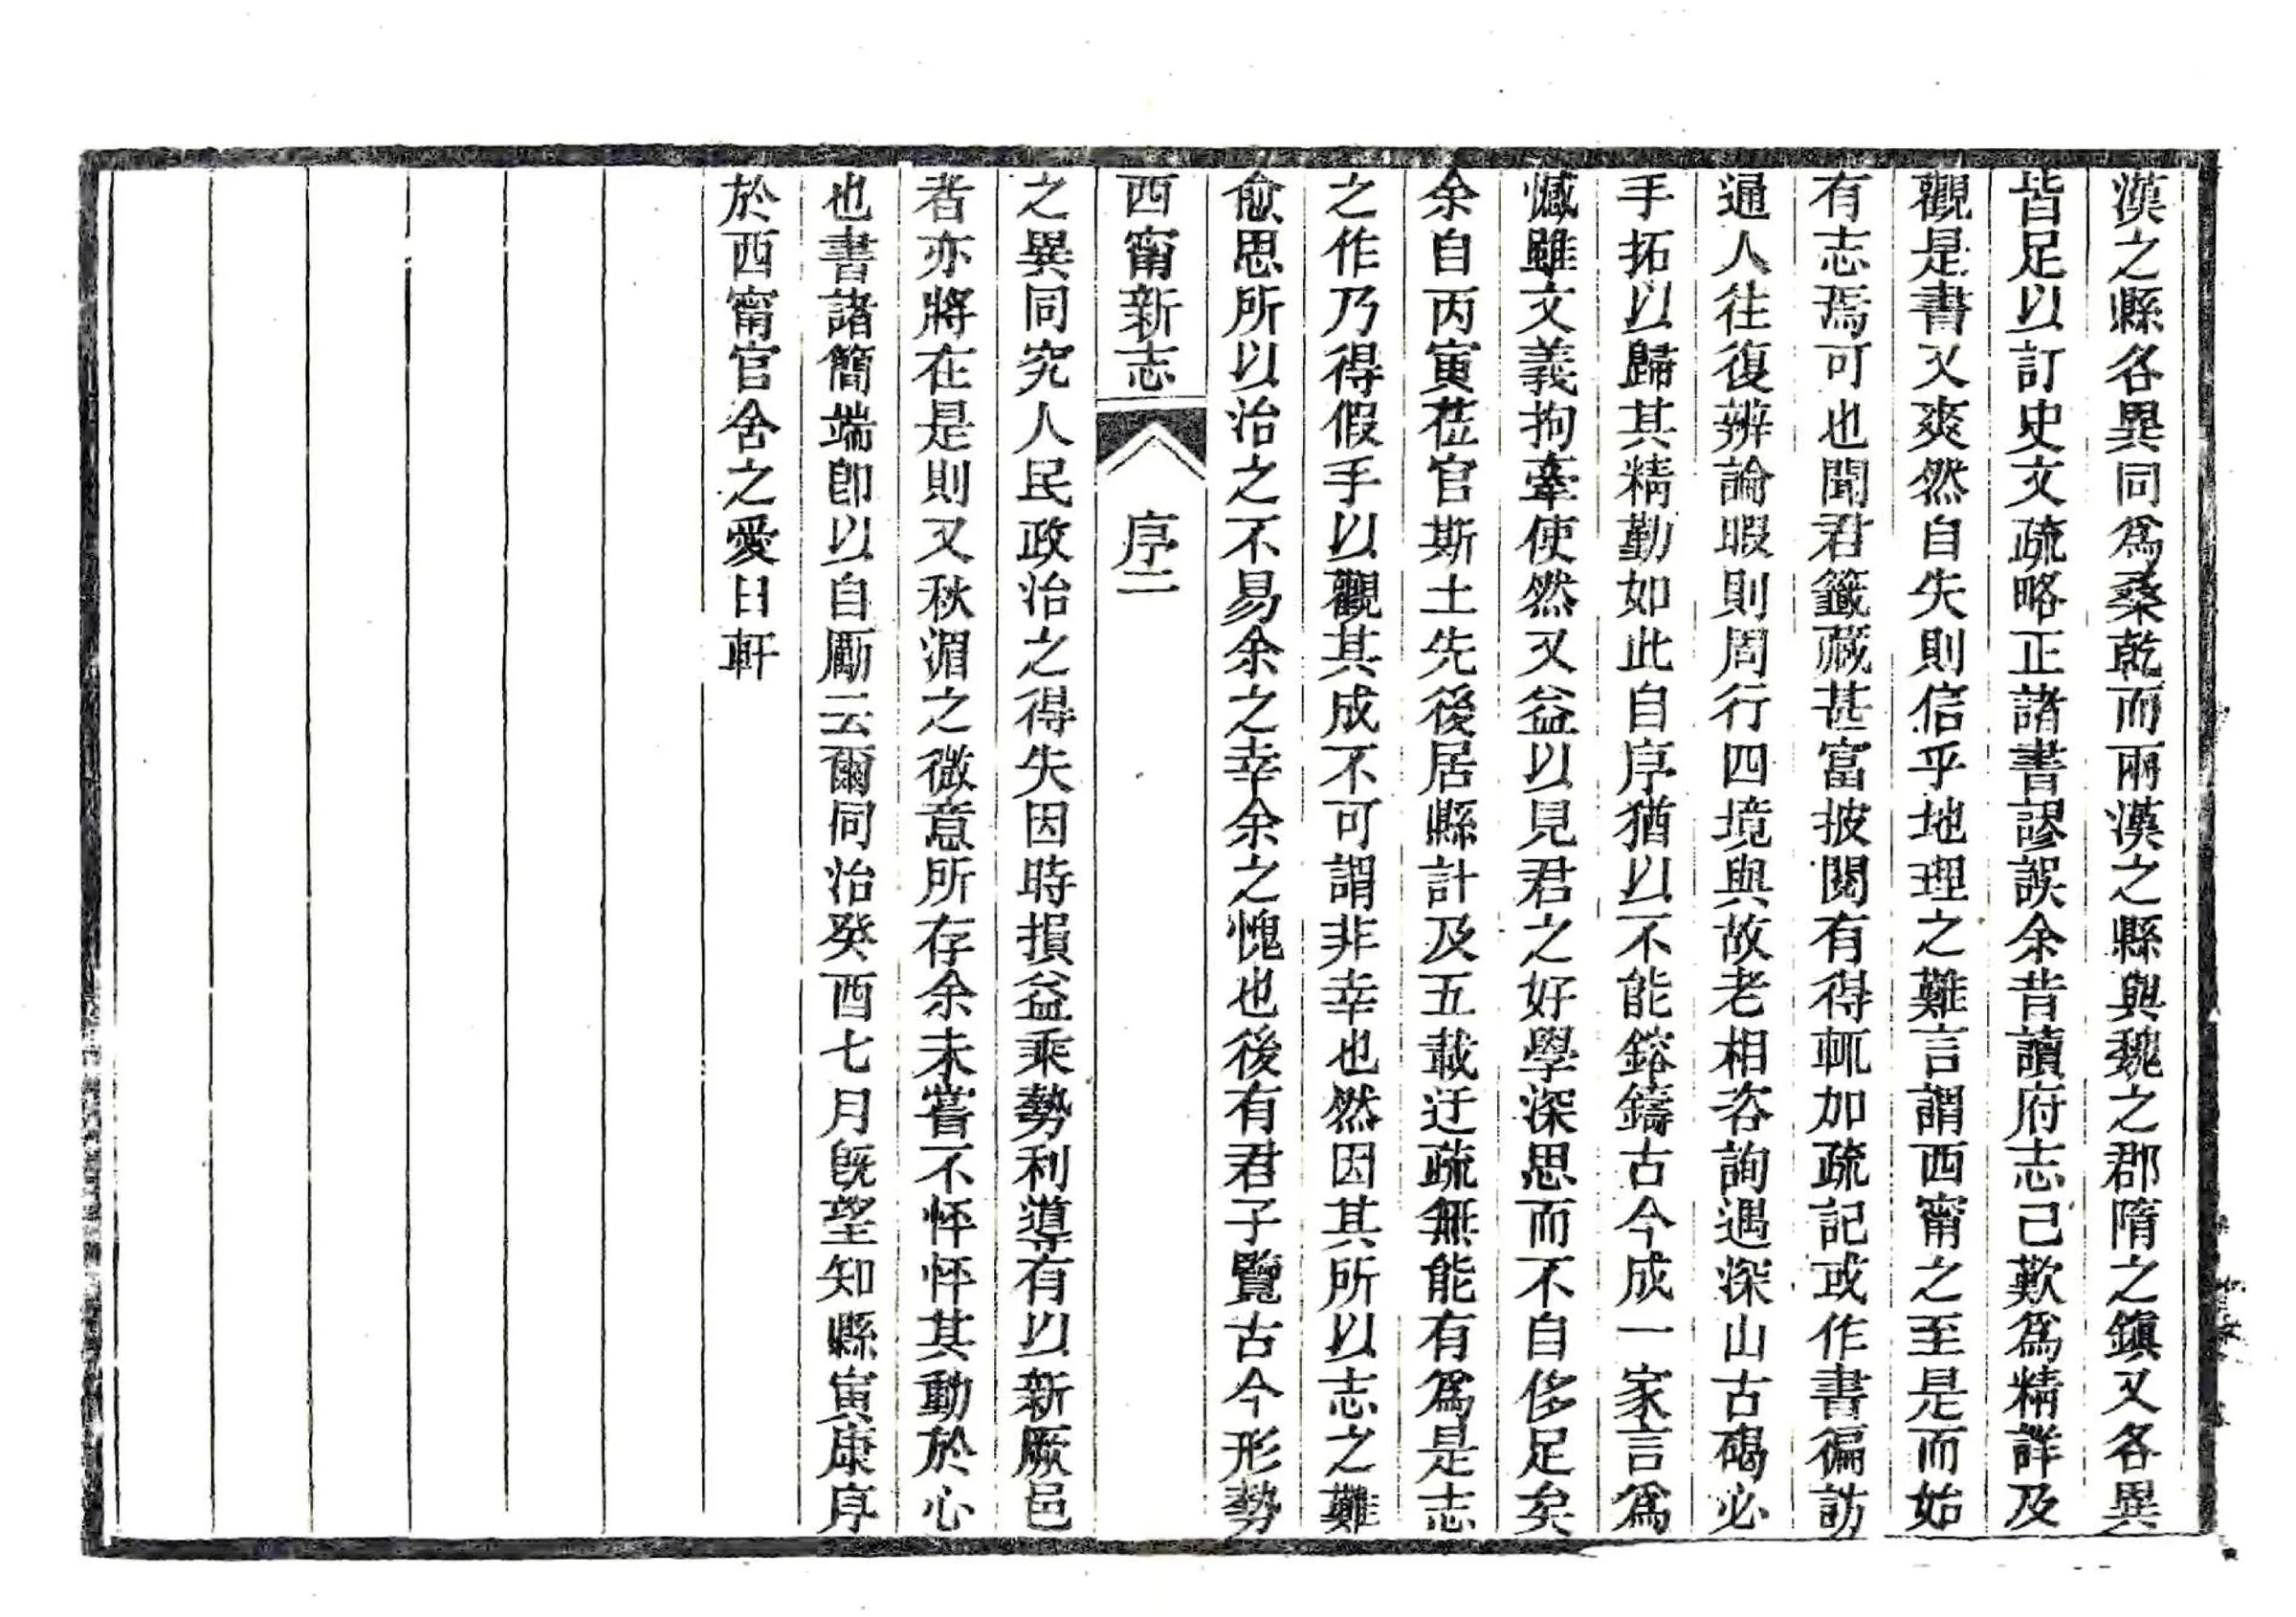 漢之縣各異同爲桑乾而兩漢之縣與魏之郡隋之鎭又各異
皆足以訂史文疏略正諸書謬誤余昔讀府志己歎爲精詳及
觀是書又爽然自失則信乎地理之難言謂西甯之至是而始
有志焉可也聞君籤藏甚富披閱有得輒加疏記或作書徧訪
通人往復辨論暇則周行四境與故老相咨詢遇深山古碣必
手拓以歸其精勤如此自序猶以不能鎔鑄古今成一家言爲
憾雖文義拘牽使然又益以見君之好學深思而不自侈足矣
余自丙寅莅官斯土先後居縣計及五載迂疏無能有爲是志
之作乃得假手以觀其成不可謂非幸也然因其所以志之難
愈思所以治之不易余之幸余之愧也後有君子覽古今形勢
西甯新志 序二
之異同究人民政治之得失因時損益乘勢利導有以新厥邑
者亦將在是則又秋湄之微意所存余未嘗不怦怦其動於心
也書諸簡端卽以自勵云爾同治癸酉七月旣望知縣寅康序
於西甯官舍之愛日軒